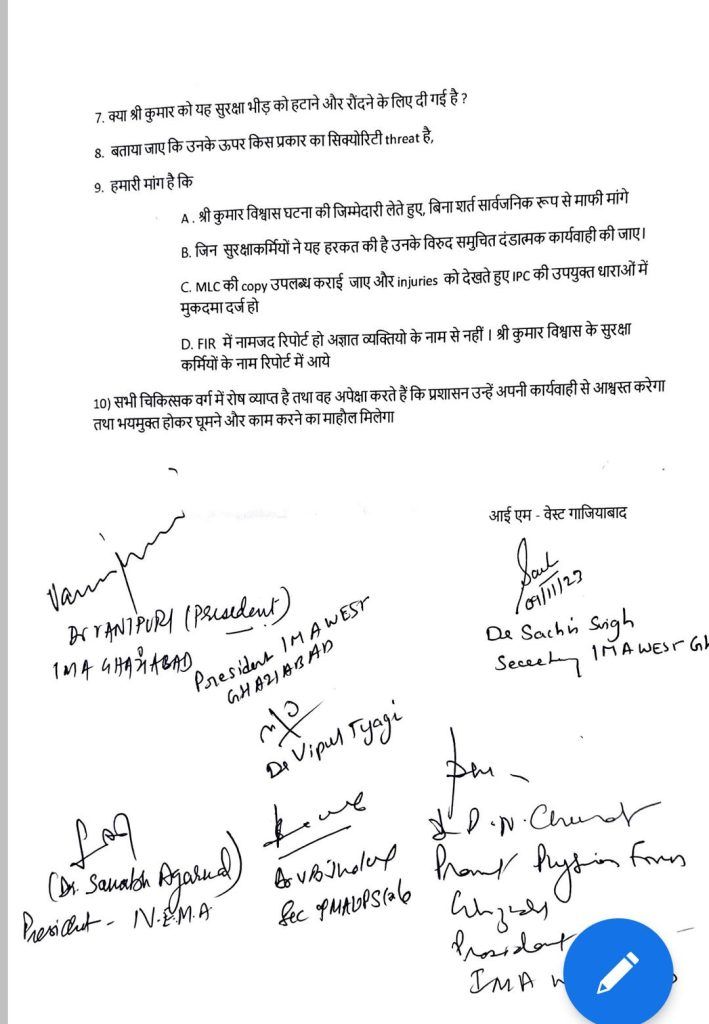 7. क्या श्री कुमार को यह सुरक्षा भीड़ को हटाने और रौंदने के लिए दी गई है ?
8. बताया जाए कि उनके ऊपर किस प्रकार का सिक्योरिटी threat है,
9. हमारी मांग है कि
A . श्री कुमार विश्वास घटना की जिम्मेदारी लेते हुए, बिना शर्त सार्वजनिक रूप से माफी मांगे
B. जिन सुरक्षाकर्मियों ने यह हरकत की है उनके विरुद समुचित दंडात्मक कार्यवाही की जाए।
C. MLC की copy उपलब्ध कराई जाए और injuries को देखते हुए IPC की उपयुक्त धाराओं में
मुकदमा दर्ज हो
D. FIR में नामजद रिपोर्ट हो अज्ञात व्यक्तियो के नाम से नहीं । श्री कुमार विश्वास के सुरक्षा
कर्मियों के नाम रिपोर्ट में आये
10) सभी चिकित्सक वर्ग में रोष व्याप्त है तथा वह अपेक्षा करते हैं कि प्रशासन उन्हें अपनी कार्यवाही से आश्वस्त करेगा
तथा भयमुक्त होकर घूमने और काम करने का माहौल मिलेगा
आई एम - वेस्ट गाजियाबाद
09/11/23
Dr (President)
IMA GHAZIABAD
President IMA WEST
GHAZIABAD
De Sachin Singh
IMA WEST
Dr Vipul Tyagi
(Dr. Saurabh Agarwal)
President - N.E.M.A
Dr V B Jindal
Sec
D.N.
Physician Forum
President
IMA